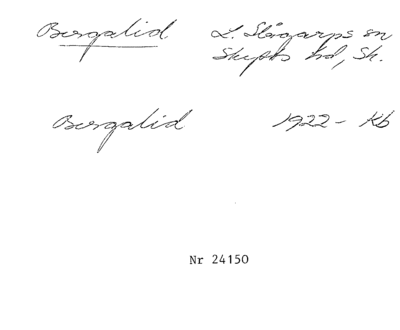 Bergalid L. Slågarps sn
Skytts hd, Sk.
Bergalid 1922- Kb
Nr 24150